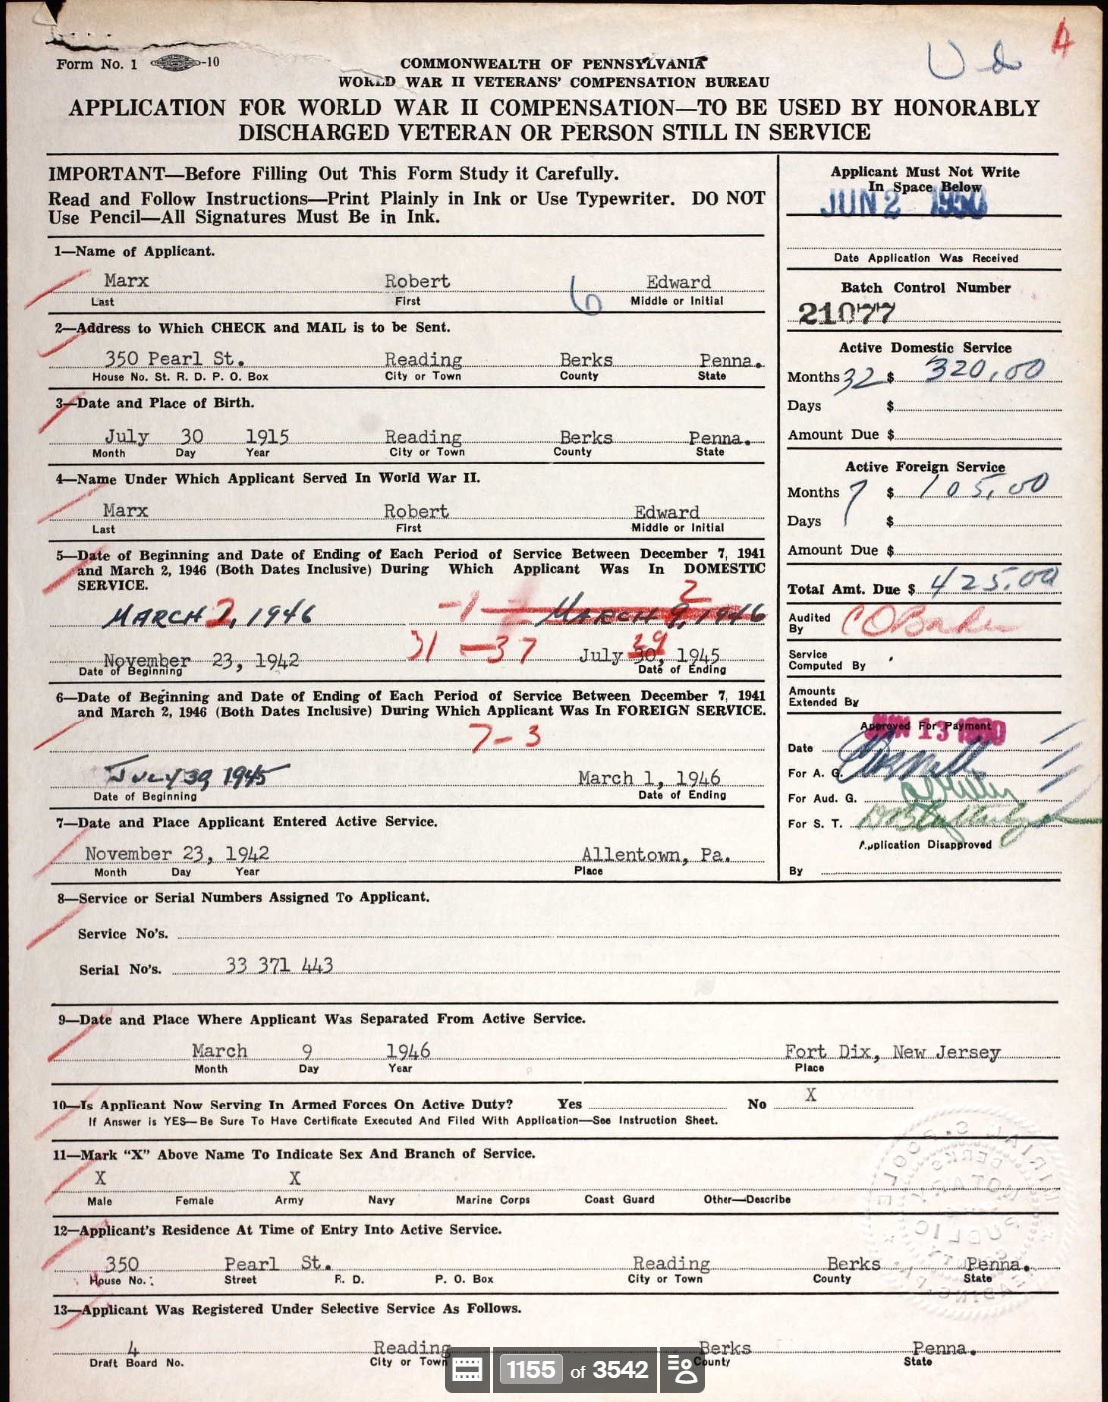 Form No. 1 -10
COMMONWEALTH OF PENNSYLVANIA
WORLD WAR II VETERANS' COMPENSATION BUREAU
APPLICATION FOR WORLD WAR II COMPENSATION—TO BE USED BY HONORABLY
DISCHARGED VETERAN OR PERSON STILL IN SERVICE
IMPORTANT—Before Filling Out This Form Study it Carefully.
Read and Follow Instructions—Print Plainly in Ink or Use Typewriter. DO NOT
Use Pencil—All Signatures Must Be in Ink.
1—Name of Applicant.
Marx Robert 6 Edward
Last First Middle or Initial
2—Address to Which CHECK and MAIL is to be Sent.
350 Pearl St. Reading Berks Penna.
House No. St. R. D. P. O. Box City or Town County State
3—Date and Place of Birth.
July 30 1915 Reading Berks Penna.
Month Day Year City or Town County State
4—Name Under Which Applicant Served In World War II.
Marx Robert Edward
Last First Middle or Initial
5—Date of Beginning and Date of Ending of Each Period of Service Between December 7, 1941
and March 2, 1946 (Both Dates Inclusive) During Which Applicant Was In DOMESTIC
SERVICE.
2
MARCH 2, 1946 -1 MARCH 9, 1946
31 -37 29
November 23, 1942 July 30, 1945
Date of Beginning Date of Ending
6—Date of Beginning and Date of Ending of Each Period of Service Between December 7, 1941
and March 2, 1946 (Both Dates Inclusive) During Which Applicant Was In FOREIGN SERVICE.
7-3
JULY 30, 1945 March 1, 1946
Date of Beginning Date of Ending
7—Date and Place Applicant Entered Active Service.
November 23, 1942 Allentown, Pa.
Month Day Year Place
Applicant Must Not Write
In Space Below
JUN 2 1950
Date Application Was Received
Batch Control Number
21077
Active Domestic Service
Months 32 $ 320.00
Days $
Amount Due $
Active Foreign Service
Months 7 $ 105.00
Days $
Amount Due $
Total Amt. Due $ 425.00
Audited
By C O Baker
Service
Computed By
Amounts
Extended By
Approved For Payment
JUN 13 1950
Date
For A. G.
For Aud. G.
For S. T.
Application Disapproved
By
8—Service or Serial Numbers Assigned To Applicant.
Service No's.
Serial No's. 33 371 443
9—Date and Place Where Applicant Was Separated From Active Service.
March 9 1946 Fort Dix, New Jersey
Month Day Year Place
10—Is Applicant Now Serving In Armed Forces On Active Duty? Yes No X
If Answer is YES—Be Sure To Have Certificate Executed And Filed With Application—See Instruction Sheet.
11—Mark "X" Above Name To Indicate Sex And Branch of Service.
X X
Male Female Army Navy Marine Corps Coast Guard Other—Describe
12—Applicant's Residence At Time of Entry Into Active Service.
350 Pearl St. Reading Berks Penna.
House No. Street R. D. P. O. Box City or Town County State
13—Applicant Was Registered Under Selective Service As Follows.
4 Reading Berks Penna.
Draft Board No. City or Town County State
1155 of 3542